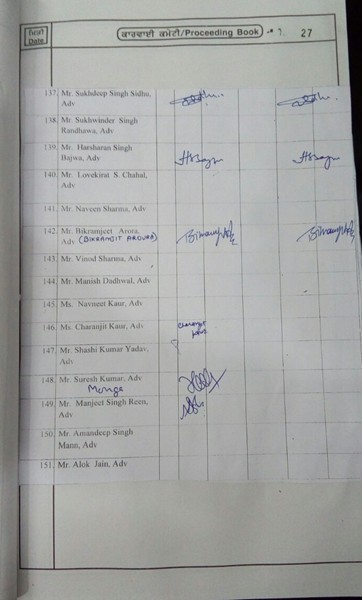 ਮਿਤੀ
Date
ਕਾਰਵਾਈ ਕਮੇਟੀ/Proceeding Book
27
137. Mr. Sukhdeep Singh Sidhu,
Adv
138. Mr. Sukhwinder Singh
Randhawa, Adv
139. Mr. Harsharan Singh
Bajwa, Adv
140. Mr. Lovekirat S. Chahal,
Adv
141. Mr. Naveen Sharma, Adv
142. Mr. Bikramjeet Arora,
Adv (BIKRAMJIT AROURA)
143. Mr. Vinod Sharma, Adv
144. Mr. Manish Dadhwal, Adv
145. Ms. Navneet Kaur, Adv
146. Ms. Charanjit Kaur, Adv
Charanjit
Kaur
147. Mr. Shashi Kumar Yadav,
Adv
148. Mr. Suresh Kumar, Adv
Monga
149. Mr. Manjeet Singh Reen,
Adv
150. Mr. Amandeep Singh
Mann, Adv
151. Mr. Alok Jain, Adv